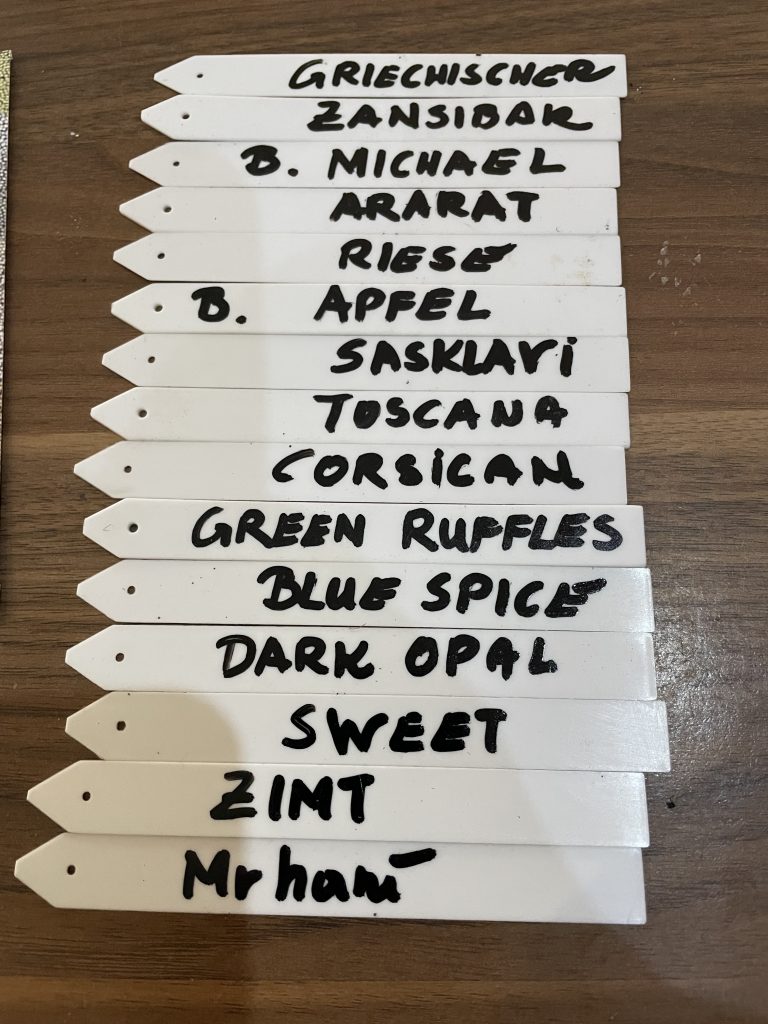 GRIECHISCHER
ZANSIBAR
B. MICHAEL
ARARAT
RIESE
B. APFEL
SASKLAVI
TOSCANA
CORSICAN
GREEN RUFFLES
BLUE SPICE
DARK OPAL
SWEET
ZIMT
Mrhani